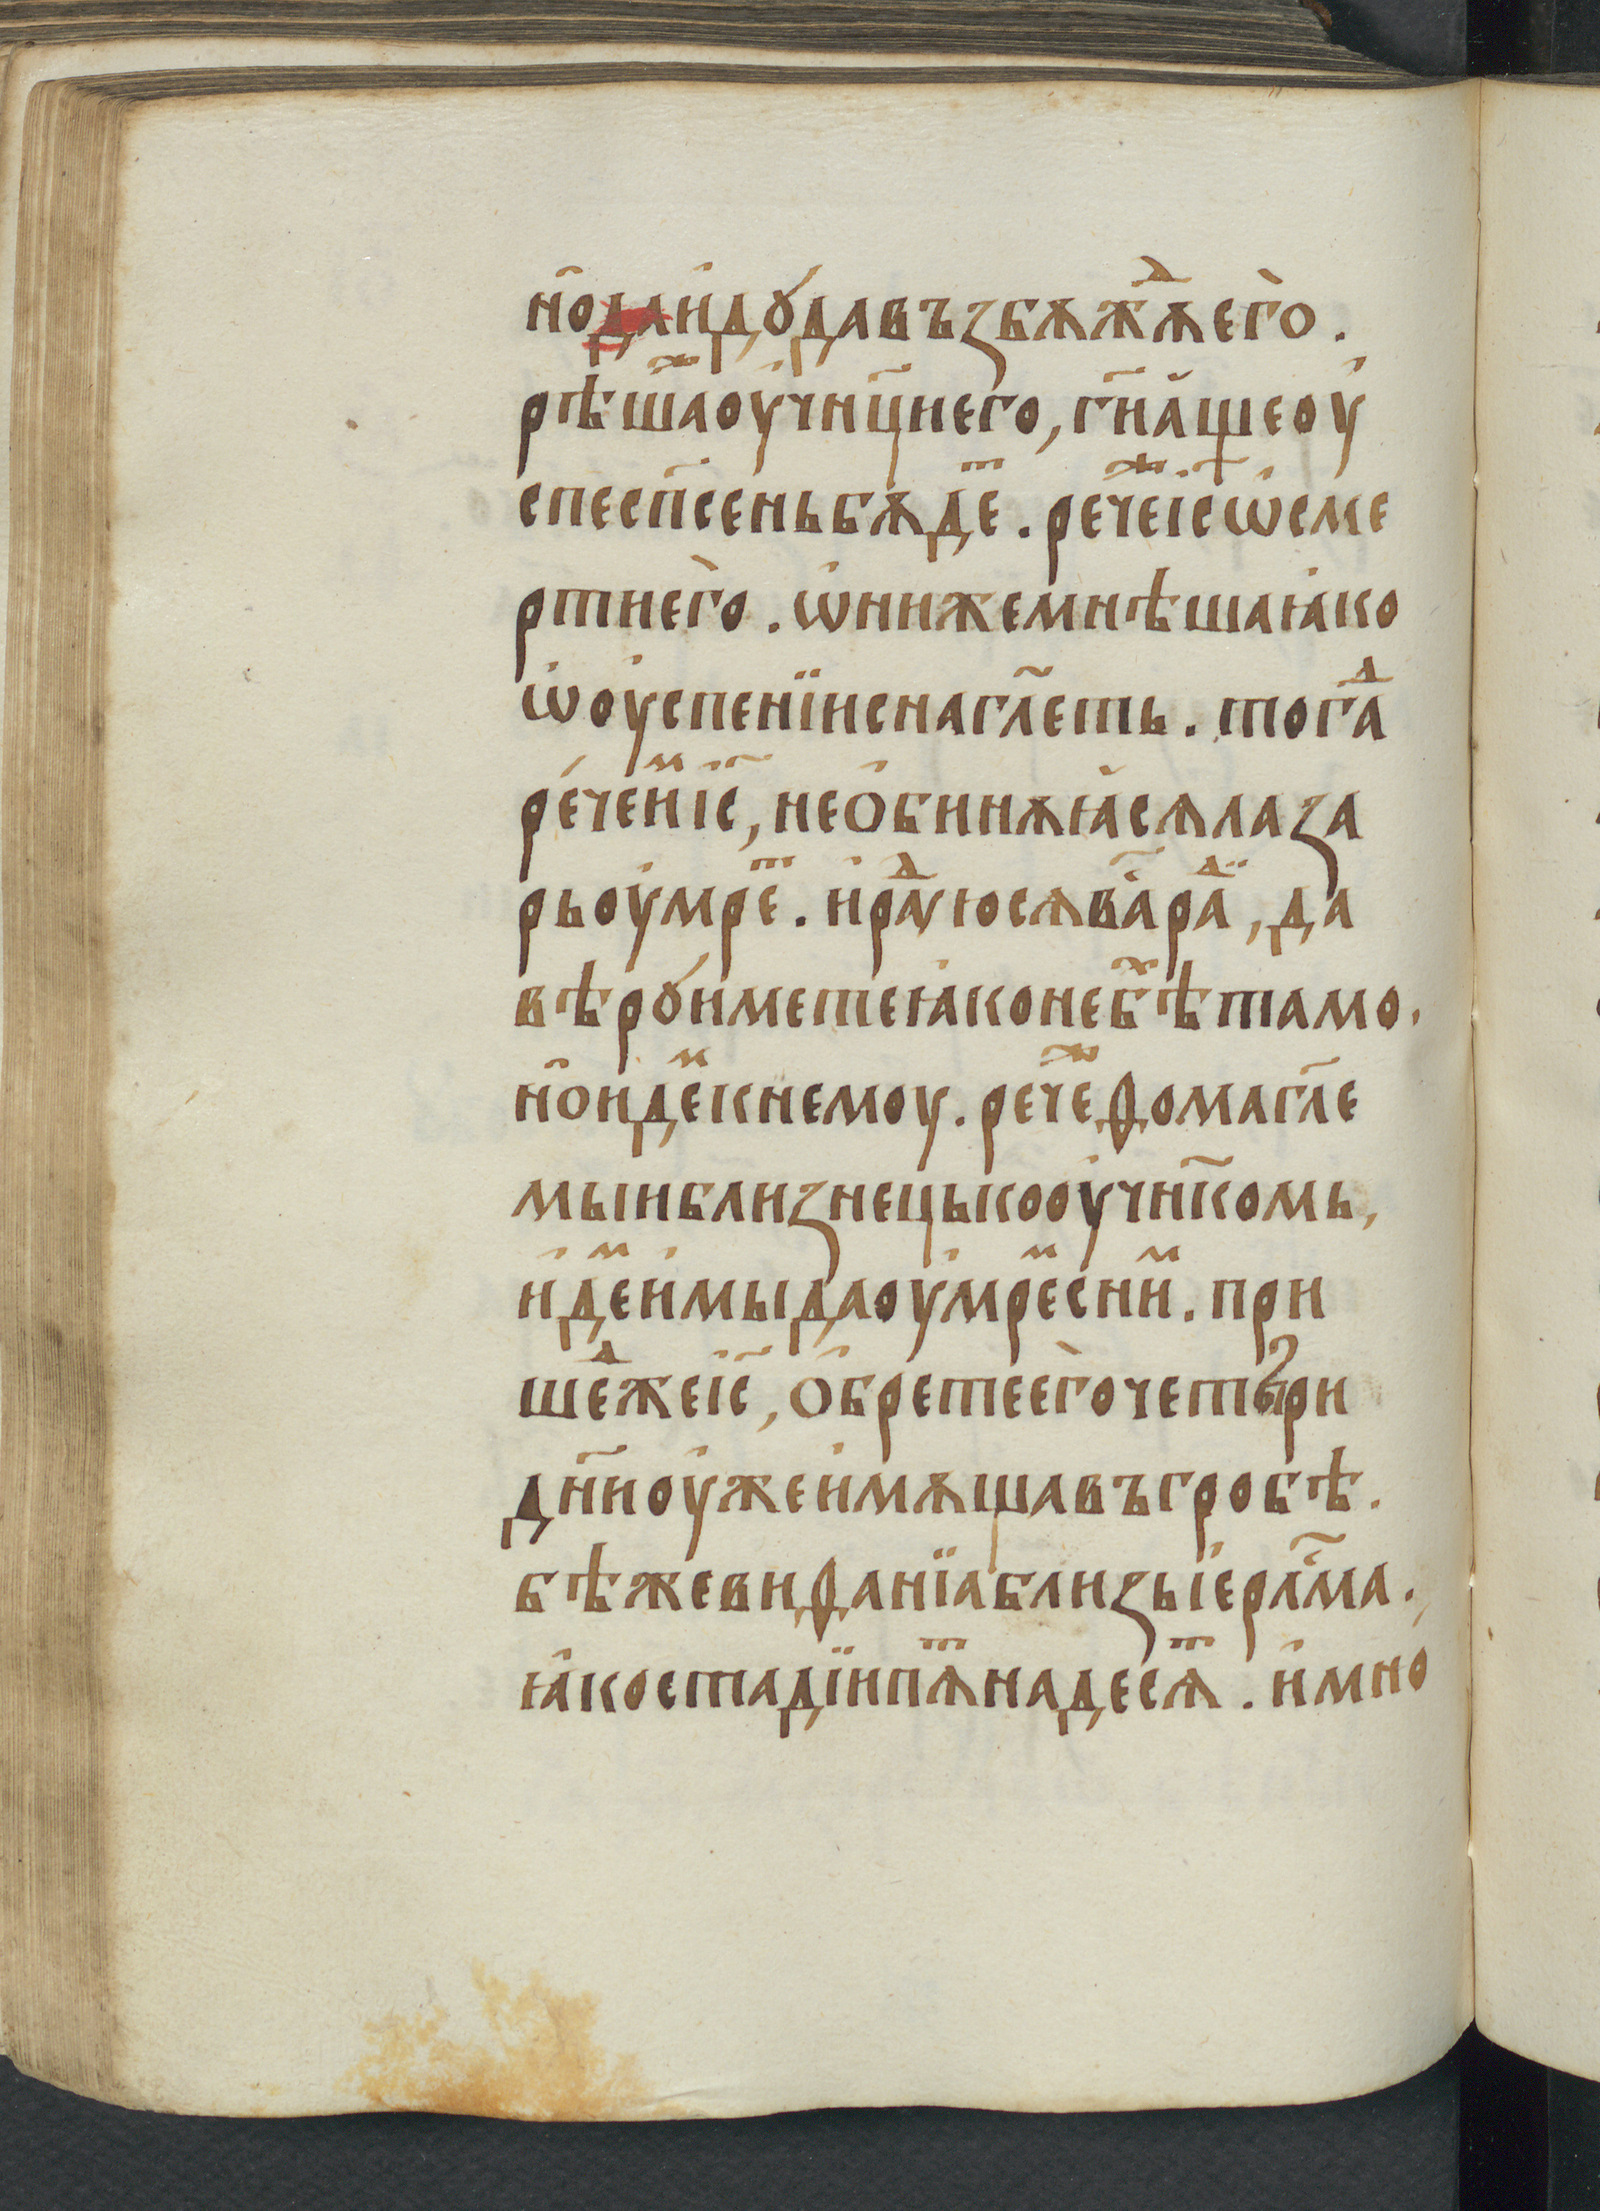 но̑даи҆дꙋ́давъꙁбѫж̑ⷣѫего̀.
рѣшаⷤоу҆чн҃цинего, гн҃а҆щеоу҆
спесп҃сеньбѫдеⷮ. речеⷤіс҃ѡ҆сме
ртнего̀. ѡ҆нижемнѣшаꙗко
ѡ҆оу҆спенїиснагл҃еть. тогаⷣ
ре́чеиⷨіс҃, нео̑бинѫꙗ҆сѧлаꙁа
рьоу҆мреⷮ. и҆раⷣуюсѧва҃раⷣи, да
вѣрꙋ́иметеꙗконебⷯѣтамо.
но̑идеⷨкнемоу. речеⷤѳомагл҃е
мыиблиꙁнецькооу҆чн҃комь,
и҆деⷨи҆мыдаоу҆мреⷨсниⷨ. при
шеⷣжеіс҃, о̑бретеего̀четыри
дн҃иоу҆жеи҆мѫщавъгробѣ.
бѣжевиѳанїаблиꙁьіерл҃ма.
ꙗ҆костадїипѧⷮнадесѧⷮ. и҆мно҆